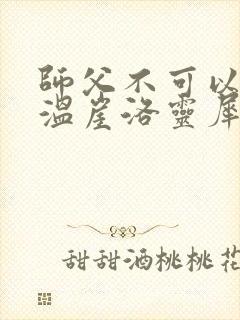 師父不可以
溫崖洛靈犀
甜甜酒桃桃花